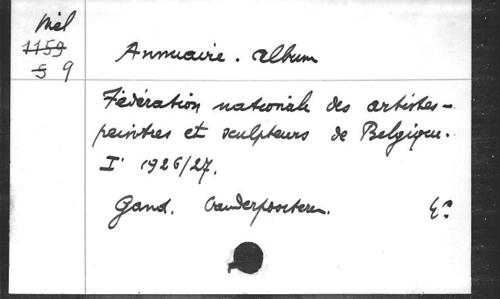 Mél
1159
5 9
Annuaire. album
Fédération nationale des artistes-
peintres et sculpteurs de Belgique.
I' 1926/27.
Gand. Vanderpoorten.